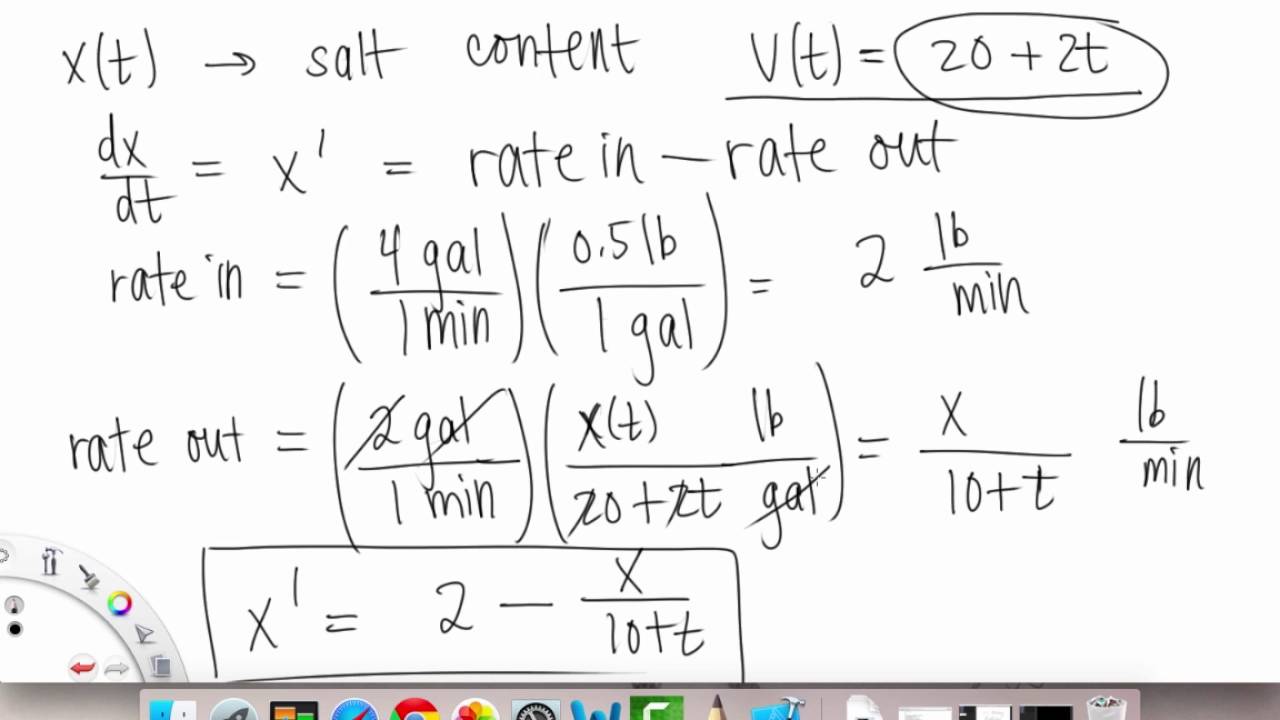 x(t) → salt content V(t) = 20 + 2t
dx/dt = x' = rate in — rate out
rate in = (4 gal / 1 min) (0.5 lb / 1 gal) = 2 lb/min
rate out = (2 gal / 1 min) (x(t) lb / 20+2t gal) = x / 10+t lb/min
x' = 2 — x / 10+t